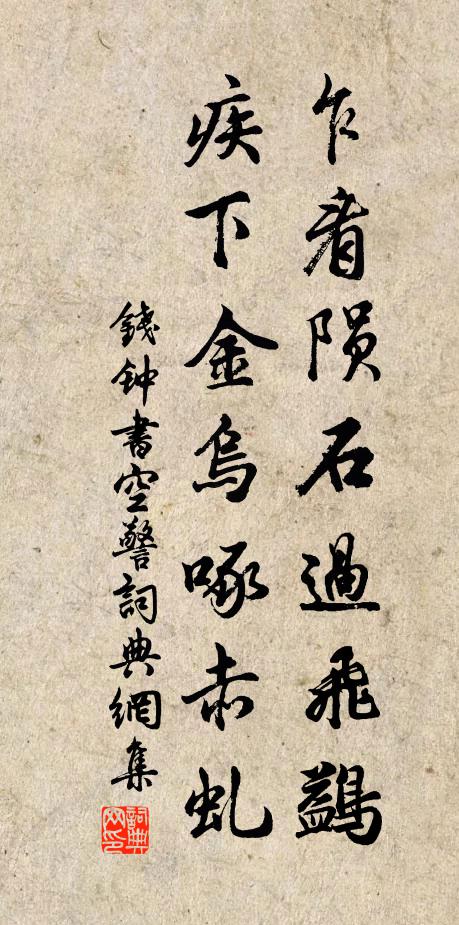 乍看陨石過飛鷁
疾下金烏啄赤虬
錢钟書空警詞典網集
詞典网印